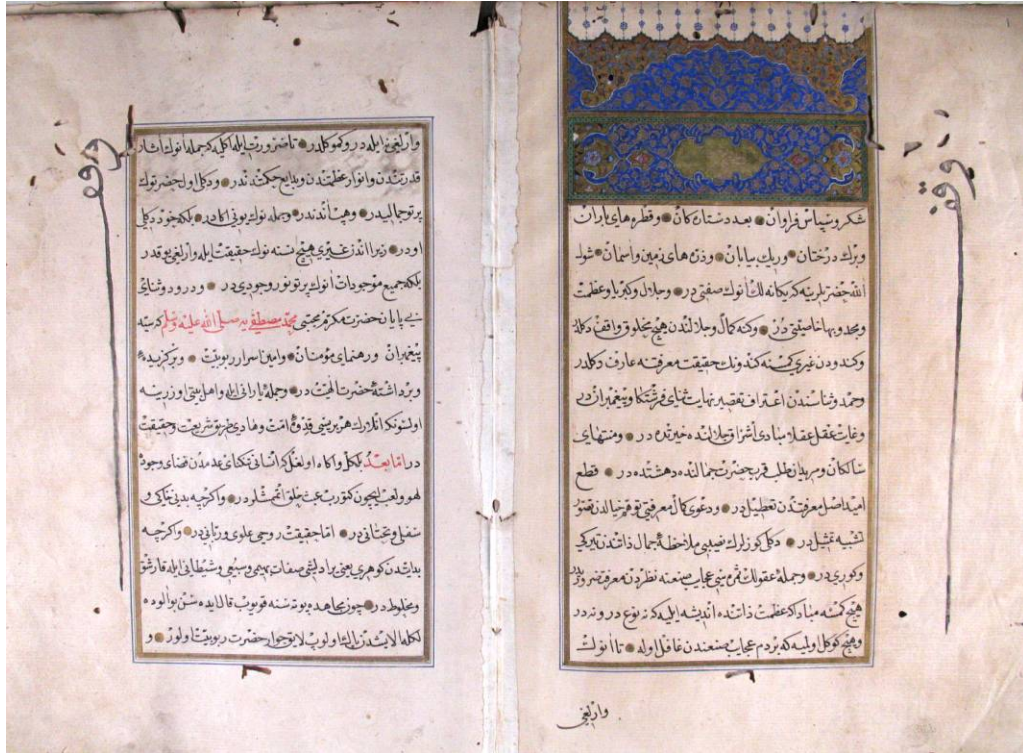 شكر وسپاس فراوان بعدد ستارەکان وقطرەهای باران
وبرك درختان وریك بیابان وذرەهای زمین واسمان شول
الله حضرتلرینه که یکانه لك أنوك صفتی در وجلال وکبریا وعظمت
ومجد وبها خاصیتی در وکنه کمال وجلالندن هیچ مخلوق واقف دکلدر
وکندودن غیری کمسنه کندونك حقیقت معرفتنه عارف دکلدر
وحمد وثناسندن اعتراف تقصیر نهایت ثنای فرشتکان وپیغمبران در
وغایت عقل عقلا مبادی اشراق جلالنده حیرتده در ومنتهای
سالکان ومریدان طلب قرب حضرت جمالنده دهشتده در قطع
امید اصل معرفتدن تعطیل در ودعوی کمال معرفتی توهم خیالدن
تشبیه تمثیل در دکل کوزلرك نصیبی ملاحظۀ جمال ذاتندن
وکوری در وجملۀ عقولك ثمرەسی عجایب صنعنه نظردن معرفت
هیچ کمسه مباد که عظمت ذاتنده اندیشه ایلیه که نه نوع در ونه در
وهیچ کوکل اولمیه که بردم عجایب صنعندن غافل اوله تا أنوك
وارلغی
وقف
وارلغی ایله در وکموکلدر تا ضرورت ایله اکلیه که جمله أنوك أثار
قدرتندن وانوار عظمتندن وبدایع حکمتندندر ودکل اول حضرتوك
پرتو جمالیدر وهپ أندندر وجمله نوك یوبی اکادر بلکه خود دکلی
اودر زیرا اندن غیری هیچ نسنه نوك حقیقت ایله وارلغی یوقدر
بلکه جمیع موجودات أنوك پرتو نور وجودی در ودرود وثنای
بی پایان حضرت مکرم مجتبی محمد مصطفی یه صلی الله علیه وسلم
پیغمبران ورهنمای مؤمنان وامین اسرار ربوبیت وبرکزیدە
وبرداشتۀ حضرت الهیت در وجملۀ یارانی ایله واهل بیتی اوزرینه
اولسونکه انلارك هر بریسی قدوۀ امت وهادی طریق شریعت وحقیقت
در اما بعد بلکل واکاه اولغل که انسانی تنکنای عدمدن فضای وجودە
لهو ولعب ایچون کتورب عبث خلق اتممشلردر واکرچه بدنی خاکی و
سفلی وتحتانی در اما حقیقت روحی علوی وربانی در واکرچه
بدایتدن کوهری یعنی یرادلشی صفات بهیمی وسبعی وشیطانی ایله قارشق
ومخلوط در چون مجاهدە بوته سنه قویوب قال ایدەسن بو الودە
لکلر الایشدن پاك اولوب لایق جوار حضرت ربوبیت اولور و
وقف